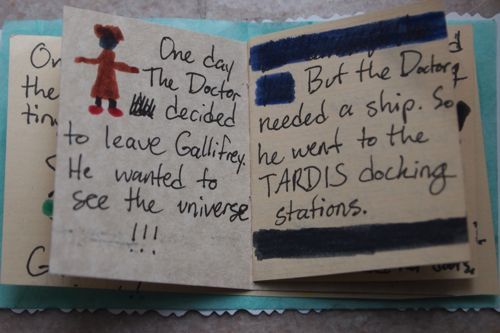 One day
The Doctor
decided
to leave Gallifrey.
He wanted to
see the universe
!!!
But the Doctor
needed a ship. So
he went to the
TARDIS docking
stations.
the
G